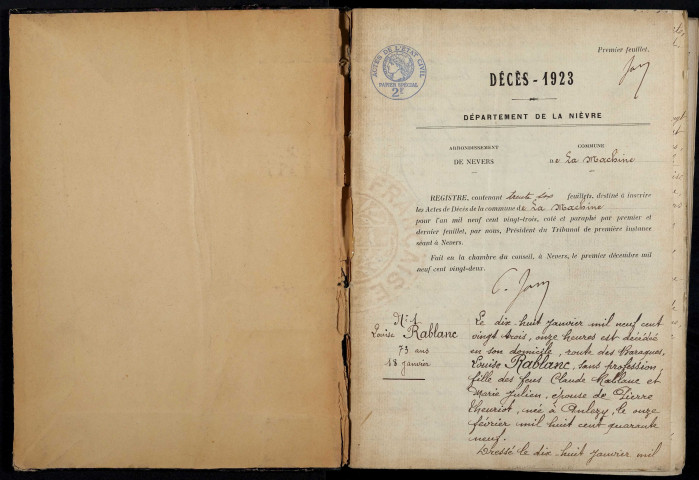 Premier feuillet.
ACTES DE L'ÉTAT CIVIL
PAPIER SPÉCIAL
2F
DÉCÈS - 1923
DÉPARTEMENT DE LA NIÈVRE
ARRONDISSEMENT
DE NEVERS
COMMUNE
DE La Machine
REGISTRE, contenant trente six feuillets, destiné à inscrire
les Actes de Décès de la commune de La Machine
pour l'an mil neuf cent vingt-trois, coté et paraphé par premier et
dernier feuillet, par nous, Président du Tribunal de première instance
séant à Nevers.
Fait en la chambre du conseil, à Nevers, le premier décembre mil
neuf cent vingt-deux.
N° 1
Louise Rablanc
73 ans
18 janvier
Le dix-huit janvier mil neuf cent
vingt trois, onze heures est décédée
en son domicile, route des Baraques,
Louise Rablanc, sans profession,
fille des feus Claude Rablanc et
Marie Julien, épouse de Pierre
Theuriot, née à Anlezy, le onze
février mil huit cent quarante
neuf.
Dressé le dix-huit janvier mil